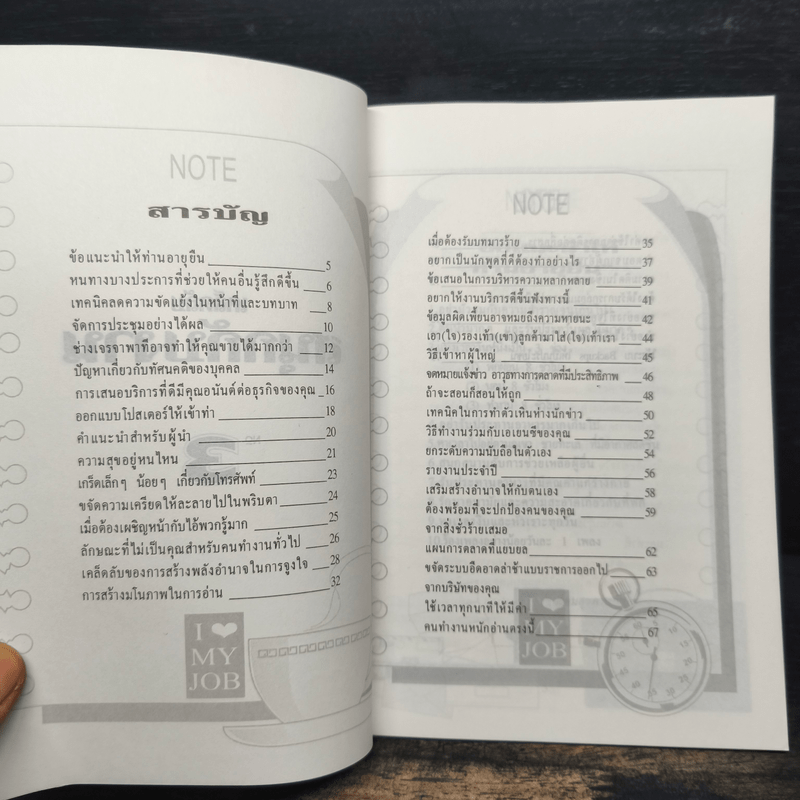 NOTE
สารบัญ
ข้อแนะนำให้ท่านอายุยืน 5
หนทางบางประการที่ช่วยให้คนอื่นรู้สึกดีขึ้น 6
เทคนิคลดความขัดแย้งในหน้าที่และบทบาท 8
จัดการประชุมอย่างได้ผล 10
ช่างเจรจาพาทีอาจทำให้คุณขายได้มากกว่า 12
ปัญหาเกี่ยวกับทัศนคติของบุคคล 14
การเสนอบริการที่ดีมีคุณอนันต์ต่อธุรกิจของคุณ 16
ออกแบบโปสเตอร์ให้เข้าท่า 18
คำแนะนำสำหรับผู้นำ 20
ความสุขอยู่หนไหน 21
เกร็ดเล็กๆ น้อยๆ เกี่ยวกับโทรศัพท์ 23
ขจัดความเครียดให้ละลายไปในพริบตา 24
เมื่อต้องเผชิญหน้ากับไอ้พวกรู้มาก 25
ลักษณะที่ไม่เป็นคุณสำหรับคนทำงานทั่วไป 26
เคล็ดลับของการสร้างพลังอำนาจในการจูงใจ 28
การสร้างมโนภาพในการอ่าน 32
I ❤ MY JOB
NOTE
เมื่อต้องรับบทมารร้าย 35
อยากเป็นนักพูดที่ดีต้องทำอย่างไร 37
ข้อเสนอในการบริหารความหลากหลาย 39
อยากให้งานบริการดีขึ้นฟังทางนี้ 41
ข้อมูลผิดเพี้ยนอาจหมายถึงความหายนะ 42
เอา(ใจ)รองเท้า(เขา)ลูกค้ามาใส่(ใจ)เท้าเรา 44
วิธีเข้าหาผู้ใหญ่ 45
จดหมายแจ้งข่าว อาวุธทางการตลาดที่มีประสิทธิภาพ 46
ถ้าจะสอนก็สอนให้ถูก 48
เทคนิคในการทำตัวเหินห่างนักข่าว 50
วิธีทำงานร่วมกับเอเยนซีของคุณ 52
ยกระดับความนับถือในตัวเอง 54
รายงานประจำปี 56
เสริมสร้างอำนาจให้กับตนเอง 58
ต้องพร้อมที่จะปกป้องคนของคุณ 59
จากสิ่งชั่วร้ายเสมอ
แผนการตลาดที่แยบยล 62
ขจัดระบบอืดอาดล่าช้าแบบราชการออกไป 63
จากบริษัทของคุณ
ใช้เวลาทุกนาทีให้มีค่า 65
คนทำงานหนักอ่านตรงนี้ 67
I ❤ MY JOB